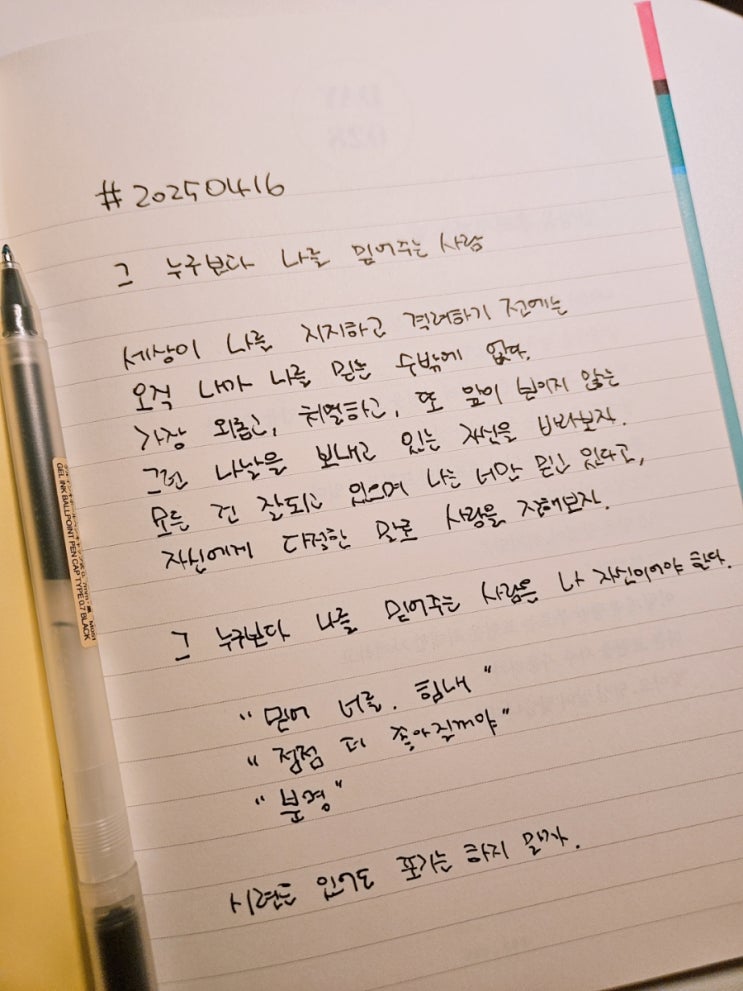 #20250416
그 누구보다 나를 믿어주는 사람
세상이 나를 지지하고 격려하기 전에는
오직 내가 나를 믿는 수밖에 없다.
가장 외롭고, 치열하고, 또 앞이 보이지 않는
그런 나날을 보내고 있는 자신을 바라보자.
모든 건 잘되고 있으며 나는 너만 믿고 있다고,
자신에게 다정한 말로 사랑을 전해보자.
그 누구보다 나를 믿어주는 사람은 나 자신이어야 한다.
"믿어 너를. 힘내"
"점점 더 좋아질꺼야"
"분명"
시련은 있고 포기는 하지 말자.
GEL INK BALLPOINT PEN CAP TYPE 0.7 BLACK